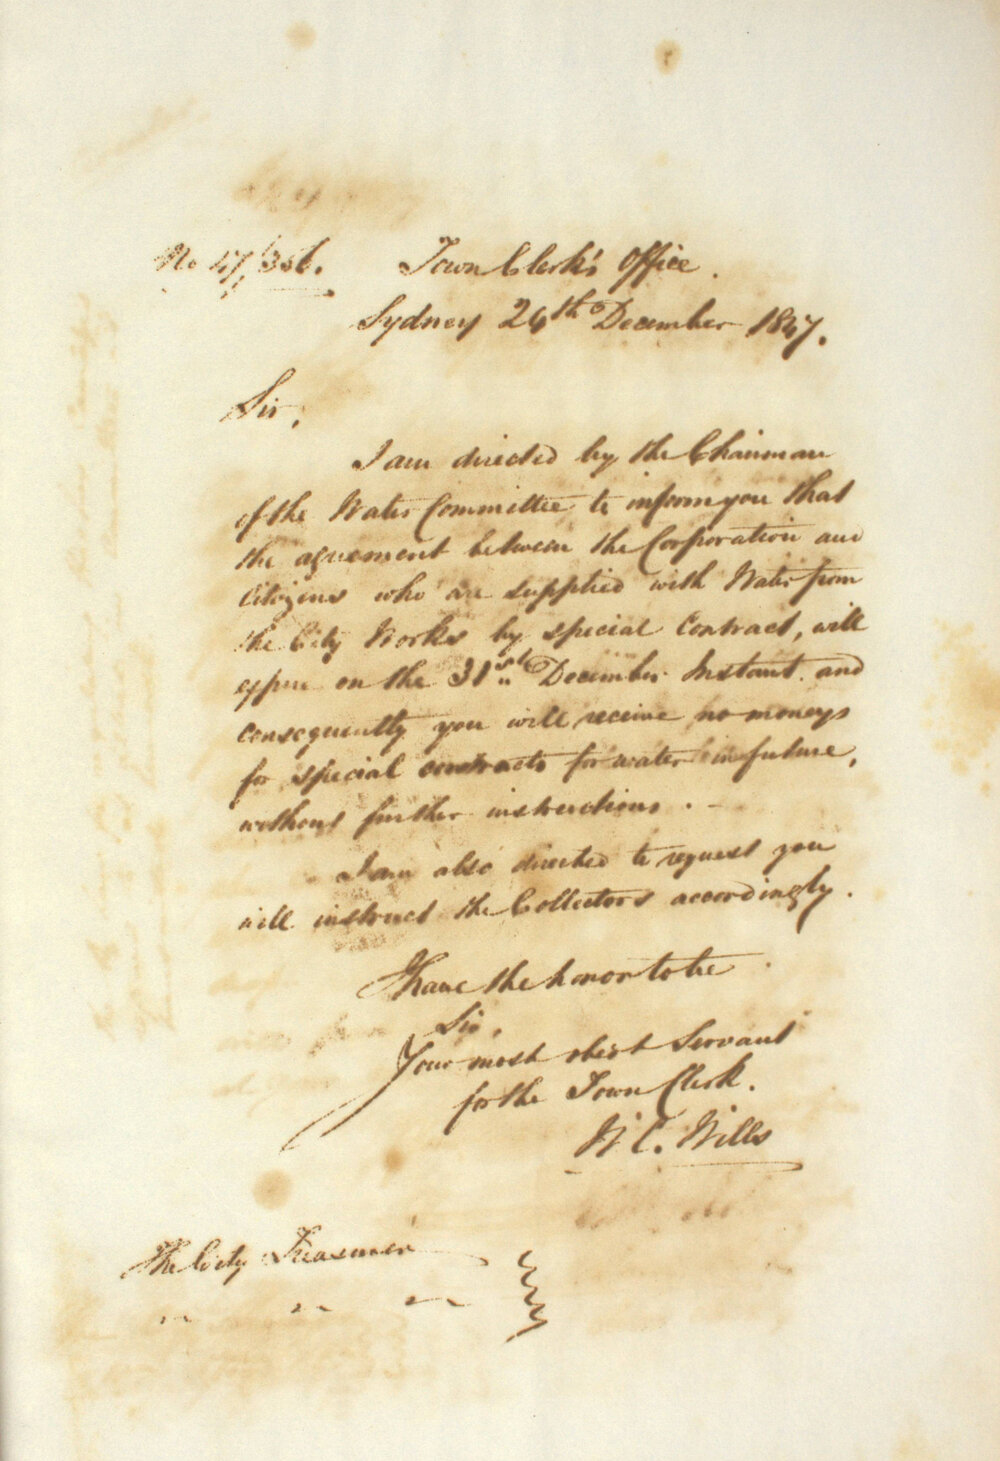 No 47/356.
Town Clerk's Office.
Sydney 24th December 1847.
Sir,
I am directed by the Chairman
of the Water Committee to inform you that
the agreement between the Corporation and
Citizens who are supplied with Water from
the City Works by special Contract, will
expire on the 31st December Instant. and
consequently you will receive no moneys
for special contracts for water in future,
without further instructions. -
I am also directed to request you
will instruct the Collectors accordingly.
I have the honor to be
Sir,
Your most obedt Servant
for the Town Clerk.
W C. Wills
The City Treasurer